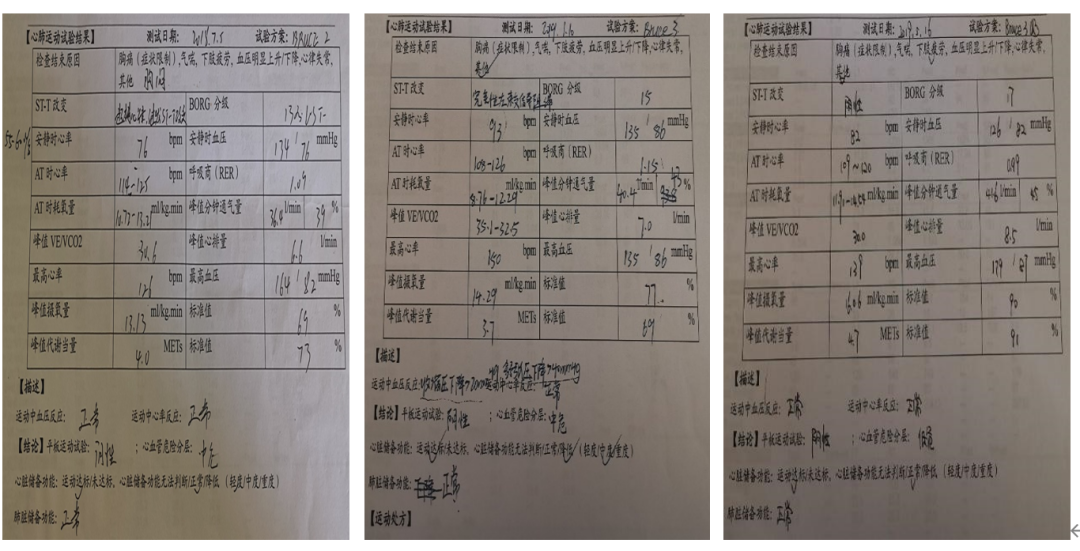 【心肺运动试验结果】 测试日期: 试验方案: BRUCE 2
检查结束原因 胸痛(症状限制),气喘,下肢疲劳,血压明显上升/下降,心律失常,
其他
ST-T 改变 BORG 分级
安静时心率 76 bpm 安静时血压 134 / 76 mmHg
AT 时心率 bpm 呼吸商(RER) 1.09
AT 时耗氧量 ml/kg.min 峰值分钟通气量 36.4 l/min 39 %
峰值 VE/VCO2 30.6 峰值心排量 6.6 l/min
最高心率 126 bpm 最高血压 164 / 82 mmHg
峰值摄氧量 13.13 ml/kg.min 标准值 69 %
峰值代谢当量 4.0 METs 标准值 73 %
【描述】
运动中血压反应: 正常 运动中心率反应: 正常
【结论】平板运动试验: 阴性 ;心血管危险分层: 中危
心脏储备功能: 运动达标/未达标、心脏储备功能无法判断/正常/降低 (轻度/中度/重度)
肺脏储备功能: 正常
【心肺运动试验结果】 测试日期: 试验方案: Bruce 3
检查结束原因 胸痛(症状限制),气喘,下肢疲劳,血压明显上升/下降,心律失常,
其他
ST-T 改变 BORG 分级 15
安静时心率 93 bpm 安静时血压 135 / 86 mmHg
AT 时心率 108-126 bpm 呼吸商(RER) 1.15
AT 时耗氧量 8.76-12.29 ml/kg.min 峰值分钟通气量 40.4 l/min 43 %
峰值 VE/VCO2 35.1-32.5 峰值心排量 7.0 l/min
最高心率 150 bpm 最高血压 135 / 86 mmHg
峰值摄氧量 14.29 ml/kg.min 标准值 77 %
峰值代谢当量 3.7 METs 标准值 69 %
【描述】
运动中血压反应: 运动中心率反应: 正常
【结论】平板运动试验: 阴性 ;心血管危险分层: 中危
心脏储备功能: 运动达标/未达标、心脏储备功能无法判断/正常/降低 (轻度/中度/重度)
肺脏储备功能: 正常
【运动处方】
【心肺运动试验结果】 测试日期: 试验方案:
检查结束原因 胸痛(症状限制),气喘,下肢疲劳,血压明显上升/下降,心律失常,
其他
ST-T 改变 阴性 BORG 分级 17
安静时心率 82 bpm 安静时血压 126 / 82 mmHg
AT 时心率 109~120 bpm 呼吸商(RER) 0.99
AT 时耗氧量 ml/kg.min 峰值分钟通气量 41.6 l/min 45 %
峰值 VE/VCO2 30.0 峰值心排量 8.5 l/min
最高心率 139 bpm 最高血压 179 / 87 mmHg
峰值摄氧量 16.06 ml/kg.min 标准值 90 %
峰值代谢当量 4.7 METs 标准值 91 %
【描述】
运动中血压反应: 正常 运动中心率反应: 正常
【结论】平板运动试验: 阴性 ;心血管危险分层: 低危
心脏储备功能: 运动达标/未达标、心脏储备功能无法判断/正常/降低 (轻度/中度/重度)
肺脏储备功能: 正常